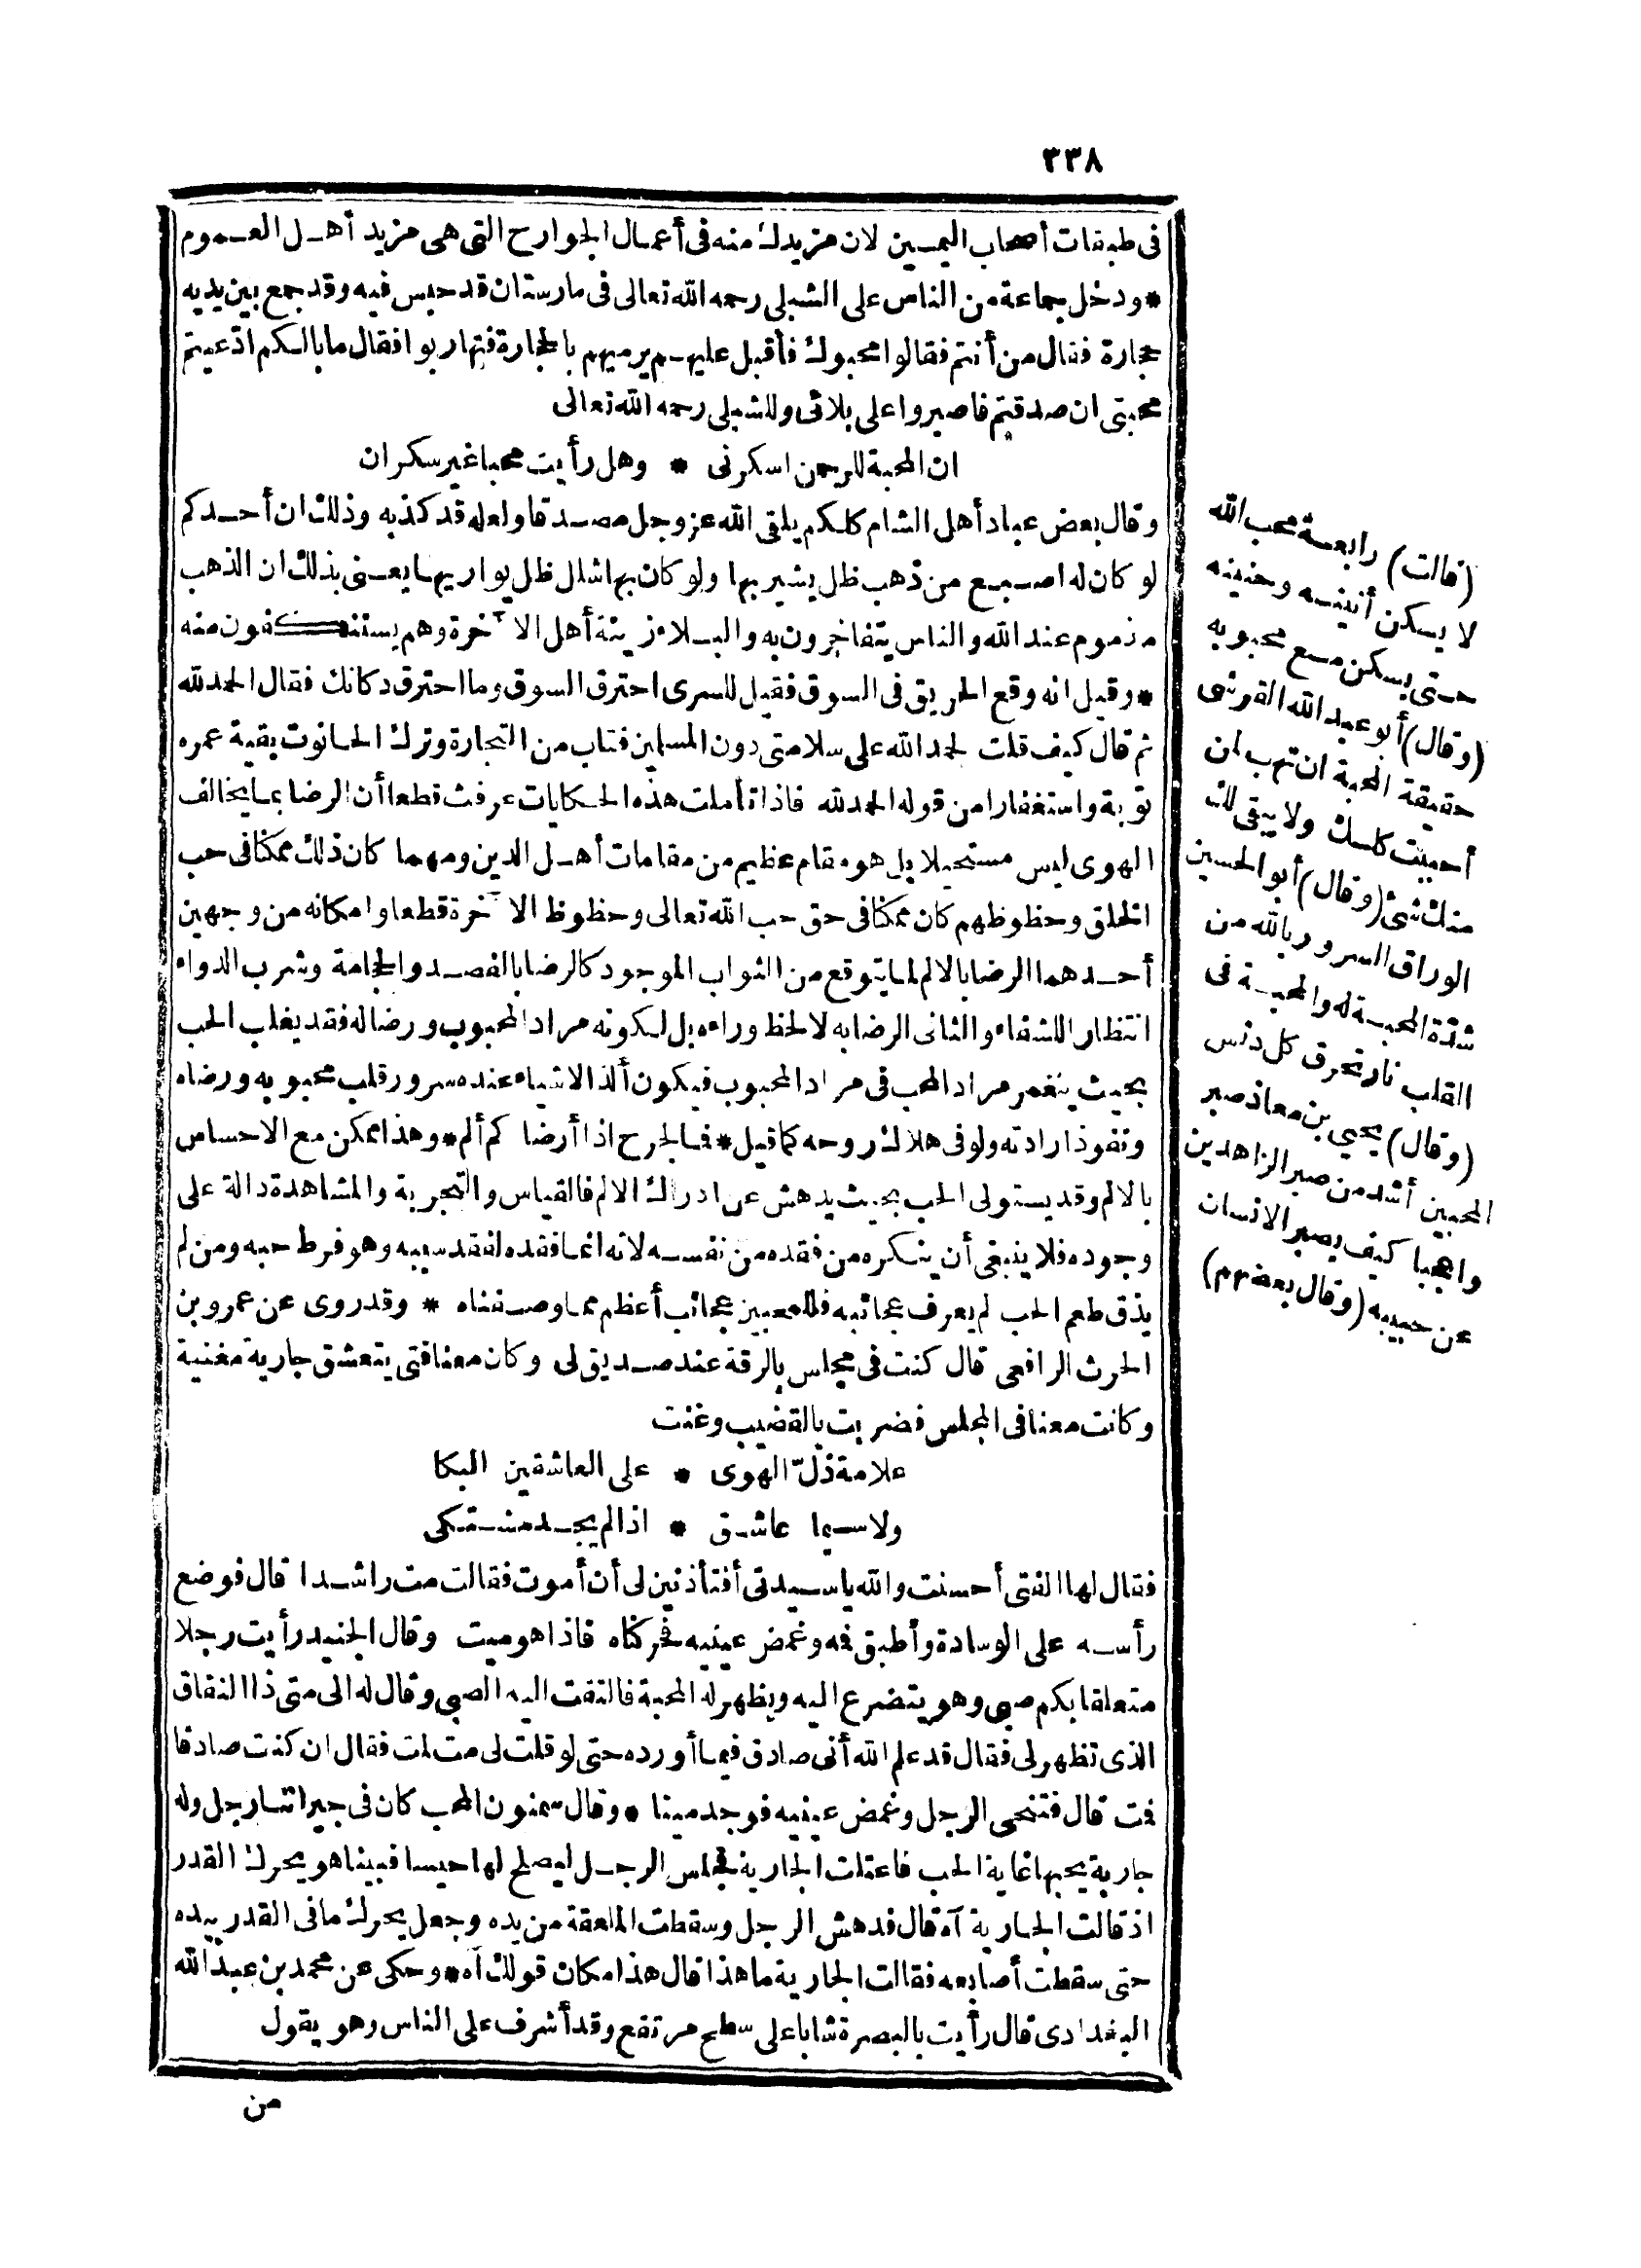 ٣٣٨
فى طبقات أصحاب اليمين لان مزيدك منه فى أعمال الجوارح التى هى مزيد أهل العموم
* ودخل جماعة من الناس على الشبلى رحمه الله تعالى فى مارستان قد حبس فيه وقد جمع بين يديه
حجارة فقال من أنتم فقالوا محبوك فأقبل عليهم يرميهم بالحجارة فتهاربوا فقال ما بالكم ادّعيتم
محبتى ان صدقتم فاصبروا على بلائى وللشبلى رحمه الله تعالى
ان المحبة للرحمن اسكرنى * وهل رأيت محبا غير سكران
وقال بعض عباد أهل الشام كلكم يلقى الله عز وجل مصدقا ولعله قد كذبه وذلك ان أحدكم
لو كان له اصبع من ذهب ظل يشير بها ولو كان بها شلل ظل يواريها يعنى بذلك ان الذهب
مذموم عند الله والناس يتفاخرون به والبلاء زينة أهل الآخرة وهم يستنكفون منه
* وقيل انه وقع الحريق فى السوق فقيل للسرى احترق السوق وما احترق دكانك فقال الحمد لله
ثم قال كيف قلت الحمد الله على سلامتى دون المسلمين فتاب من التجارة وترك الحانوت بقية عمره
توبة واستغفارا من قوله الحمد لله فاذا تأملت هذه الحكايات عرفت قطعا أن الرضا بما يخالف
الهوى ليس مستحيلا بل هو مقام عظيم من مقامات أهل الدين ومهما كان ذلك ممكنا فى حب
الخلق وحظوظهم كان ممكنا فى حق حب الله تعالى وحظوظ الآخرة قطعا وامكانه من وجهين
أحدهما الرضا بالالم لما يتوقع من الثواب الموجود كالرضا بالفصد والحجامة وشرب الدواء
انتظار اللشفاء والثانى الرضا به لا لحظ وراءه بل لكونه مراد المحبوب ورضا له فقد يغلب الحب
بحيث ينغمر مراد المحب فى مراد المحبوب فيكون ألذ الاشياء عنده سرور قلب محبوبه ورضاه
ونفوذ ارادته ولو فى هلاك روحه كما قيل * فما لجرح اذا أرضاكم ألم * وهذا ممكن مع الاحساس
بالالم وقد يستولى الحب بحيث يدهش عن ادراك الالم فالقياس والتجربة والمشاهدة دالة على
وجوده فلا ينبغى أن ينكره من فقده من نفسه لانه انما فقده لفقد سببه وهو فرط حبه ومن لم
يذق طعم الحب لم يعرف عجائبه فللمحبين عجائب أعظم مما وصفناه * وقد روى عن عمرو بن
الحرث الرافعى قال كنت فى مجلس بالرقة عند صديق لى وكان معنا فتى يتعشق جارية مغنية
وكانت معنا فى المجلس فضربت بالقضيب وغنت
علامة ذلّ الهوى * على العاشقين البكا
ولا سيما عاشق * اذا لم يجد مشتكى
فقال لها الفتى أحسنت والله يا سيدتى أفتأذنين لى أن أموت فقالت مت راشدا قال فوضع
رأسه على الوسادة وأطبق فمه وغمض عينيه فحركناه فاذا هو ميت وقال الجنيد رأيت رجلا
متعلقا بكم صبى وهو يتضرع اليه ويظهر له المحبة فالتفت اليه الصبى وقال له الى متى ذا النفاق
الذى تظهر لى فقال قد علم الله أنى صادق فيما أورده حتى لو قلت لى مت لمت فقال ان كنت صادقا
فمت قال فتنحى الرجل وغمض عينيه فوجد ميتا * وقال سمنون المحب كان فى جيراننا رجل وله
جارية يحبها غاية الحب فاعتلت الجارية فجلس الرجل ليصلح لها حيسا فبينا هو يحرك القدر
اذ قالت الجارية آه قال فدهش الرجل وسقطت الملعقة من يده وجعل يحرك ما فى القدر بيده
حتى سقطت أصابعه فقالت الجارية ما هذا قال هذا مكان قولك آه * وحكى عن محمد بن عبد الله
البغدادى قال رأيت بالبصرة شابا على سطح مرتفع وقد أشرف على الناس وهو يقول
من
(قالت) رابعة محب الله
لا يسكن أنينه وحنينه
حتى يسكن مع محبوبه
(وقال) أبو عبد الله القرشى
حقيقة المحبة ان تهب لمن
أحببت كلك ولا يبقى لك
منك شئ (وقال) أبو الحسين
الوراق السرور بالله من
شدّة المحبة له والمحبة فى
القلب نار تحرق كل دنس
(وقال) يحيى بن معاذ صبر
المحبين أشد من صبر الزاهدين
واعجبا كيف يصبر الانسان
عن حبيبه (وقال بعضهم)